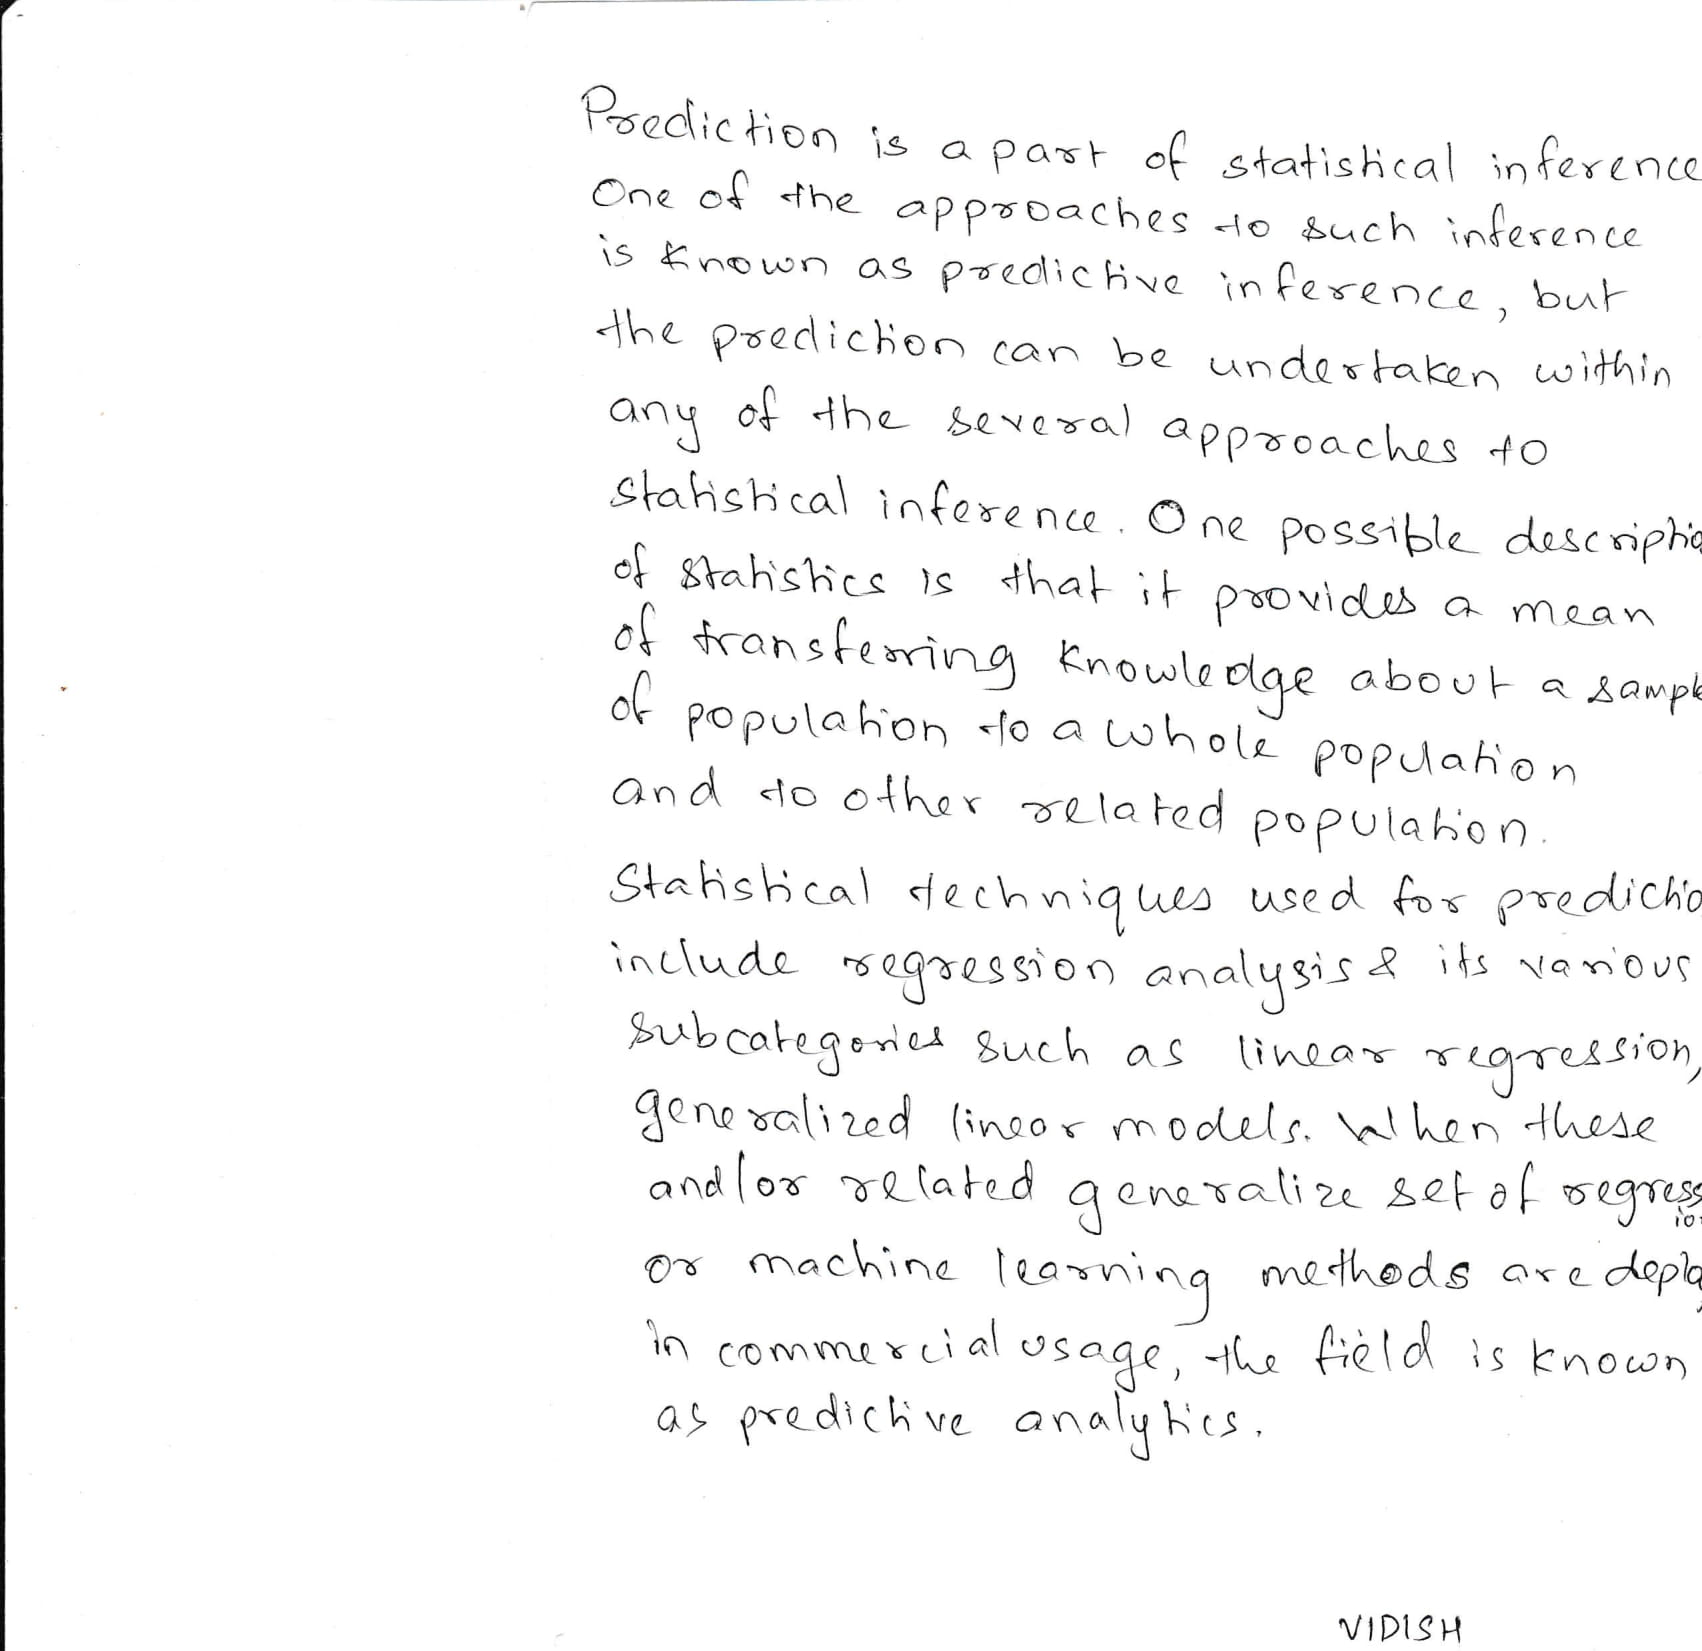 Prediction is a part of statistical inference
One of the approaches to such inference
is known as predictive inference, but
the prediction can be undertaken within
any of the several approaches to
statistical inference. One possible descriptio
of statistics is that it provides a mean
of transferring knowledge about a sample
of population to a whole population
and to other related population.
Statistical techniques used for predictio
include regression analysis & its various
subcategories such as linear regression,
generalized linear models. When these
and/or related generalize set of regression
or machine learning methods are deplo
in commercial usage, the field is known
as predictive analytics.
VIDISH